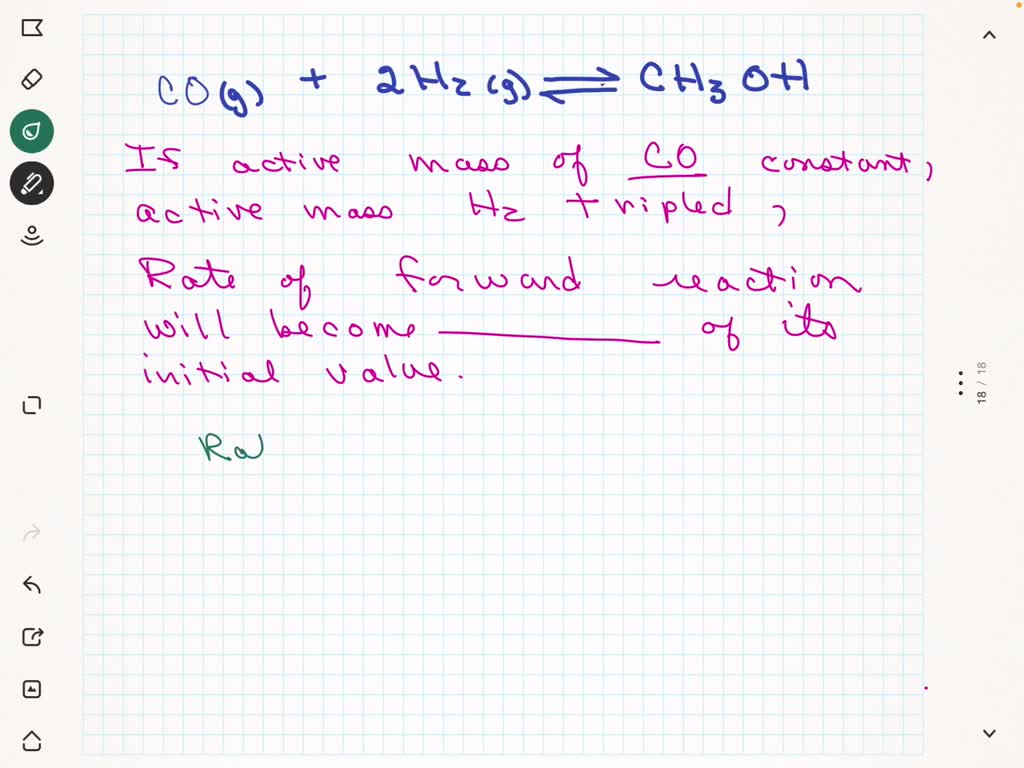 CO(g) + 2H₂(g) ⇌ CH₃OH
Is active mass of CO constant,
active mass H₂ tripled,
Rate of forward reaction
will become ________ of its
initial value.
Ra
18 / 18